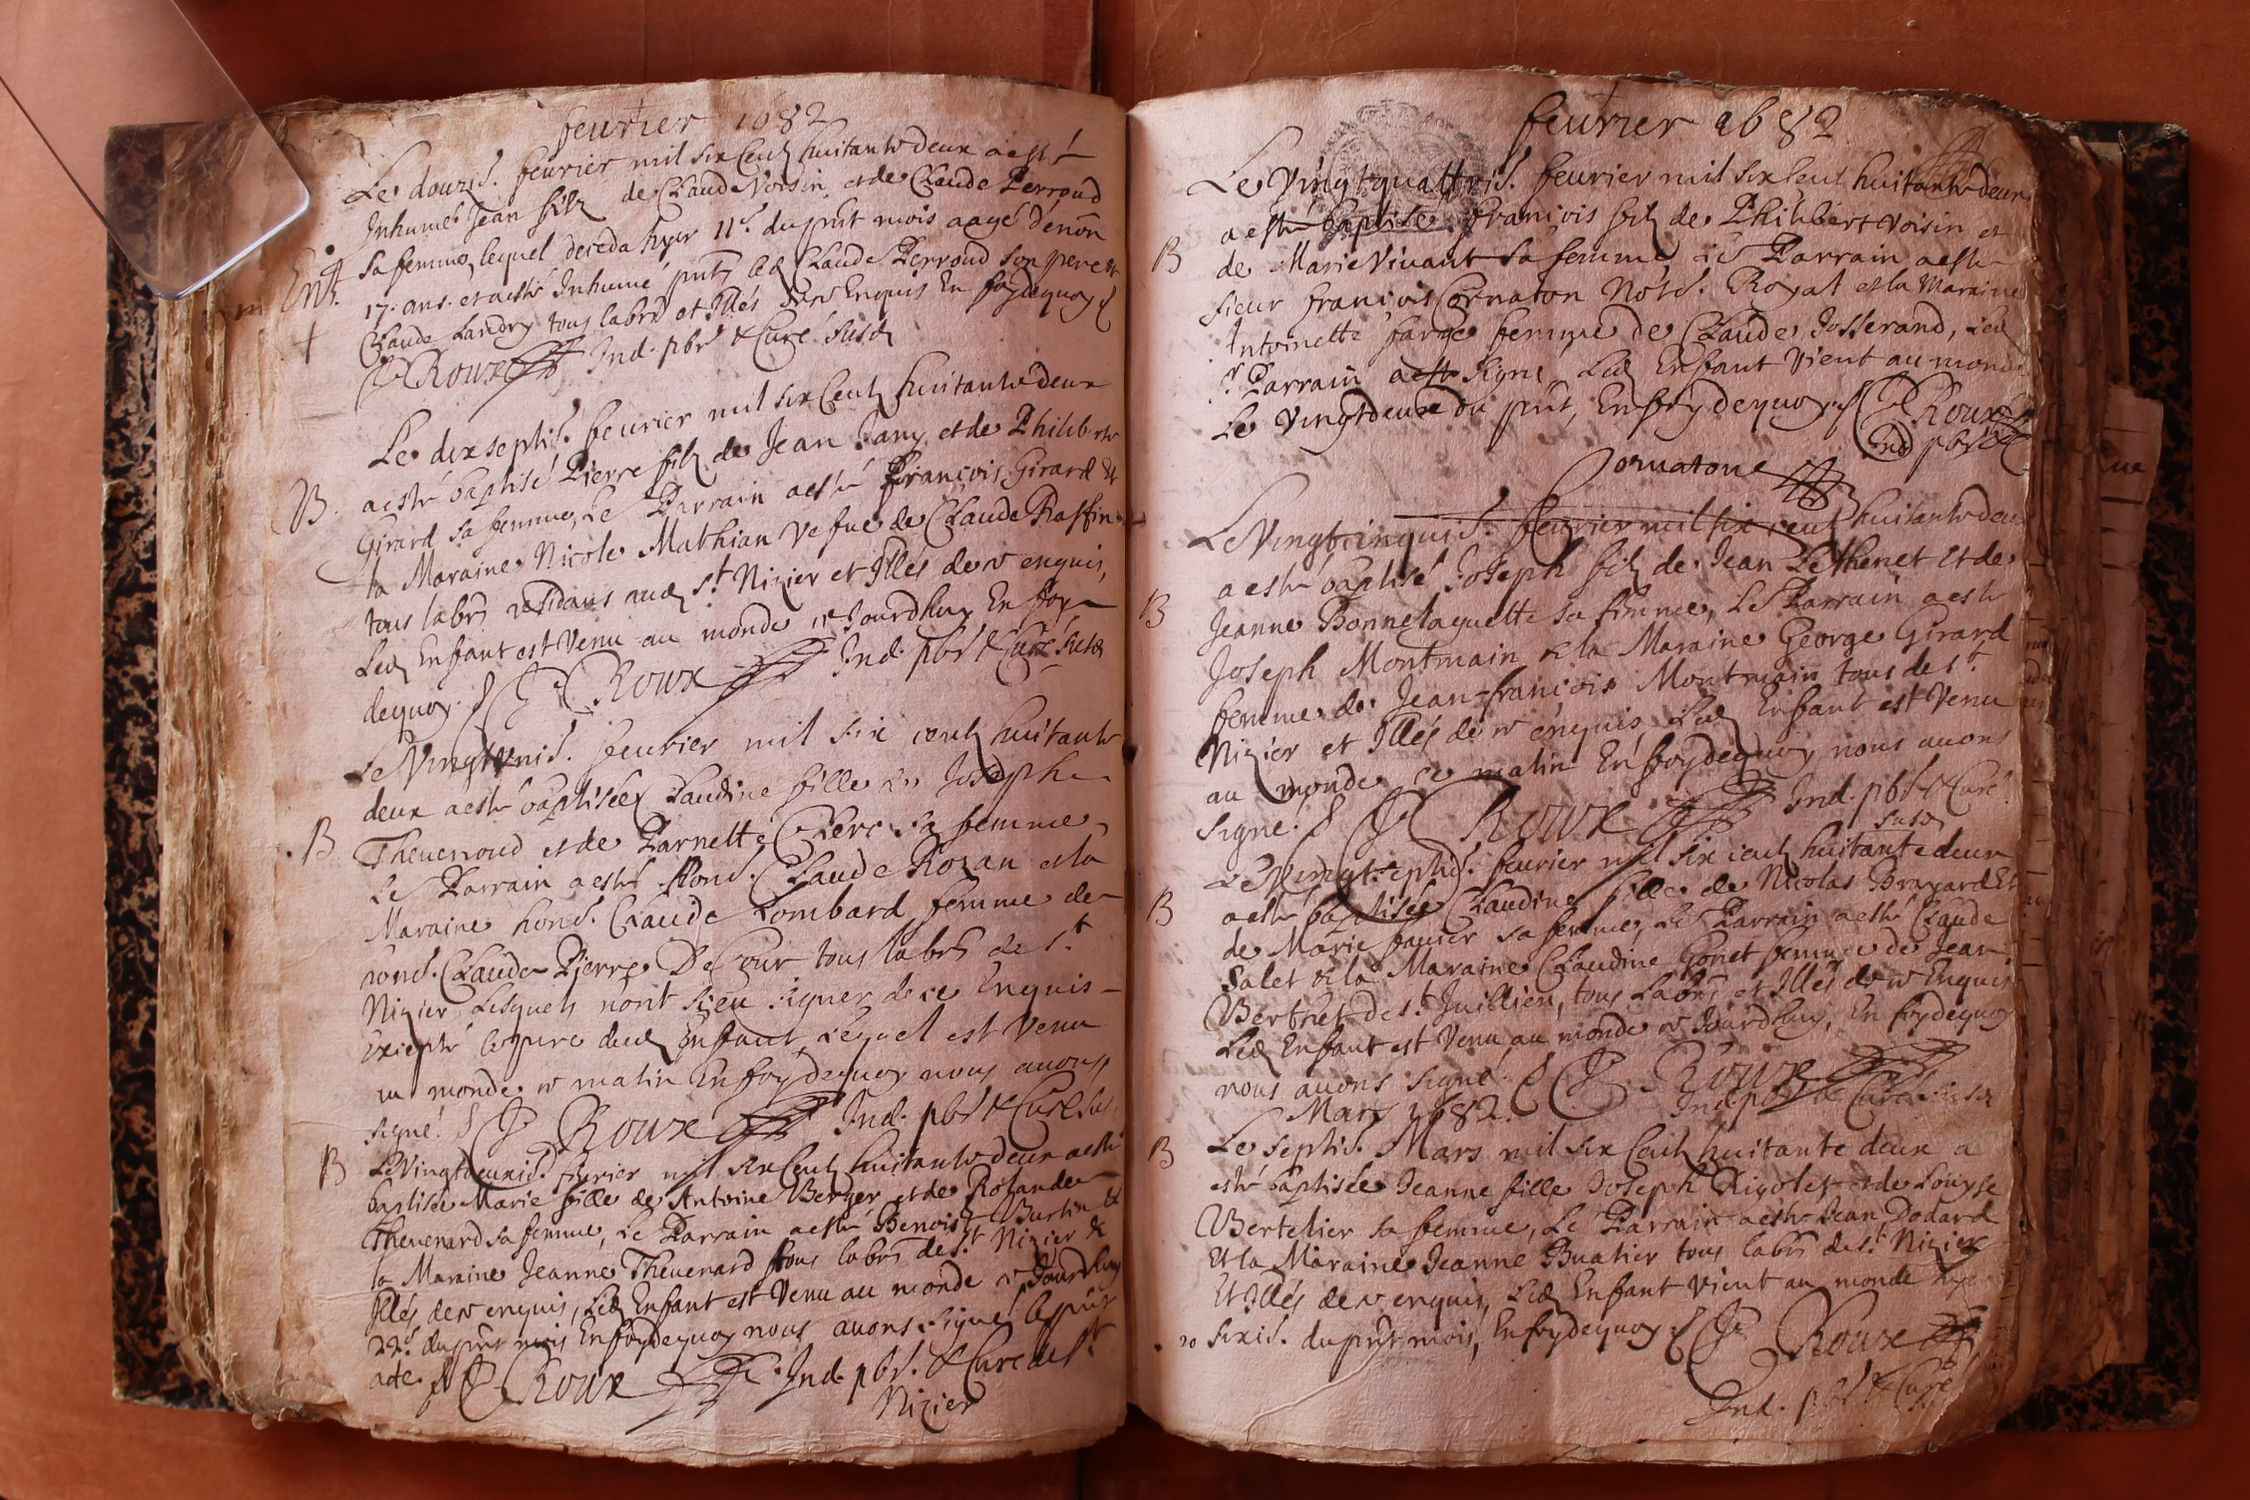 feurier 1682
Le douzis. feurier mil six Centz huitante deux a esté
Inhumé Jean filz de Claude Voisin et de Claude Perroud
sa femme, lequel deceda hyer 11e. du pnt mois aagé denon
Ent. 17. ans. et a esté Inhumé pntz led Claude Perroud son pere &
Claude Landry tous labrs et Illés de ce Enquis En foy dequoy
Roux Ind. pbr & Curé susd
Le dix septis. feurier mil six Centz huitante deux
B. a esté baptisé Pierre filz de Jean Jany et de Philiberte
Girard sa femme, Le Parrain a esté François Girard &
la Maraine Nicole Mathian Vefue de Claude Raffin
tous labrs residans aud St. Nizier et Illés de ce enquis,
Led Enfant est Venu au monde ce Jourdhuy En foy
dequoy. Roux Ind. pbr & Curé susd
Le Vingt Vnis. feurier mil six centz huitante
deux a esté baptisée Claudine fille de Joseph
B Theuenoud et de Parnette Clerc sa femme
Le Parrain a esté hons. Claude Rozan et la
Maraine hons. Claude Lombard femme de
hons. Claude Pierre De Cour tous labrs de St.
Nizier Lesquels n'ont sceu signer de ce Enquis
Excepté le pere dud Enfant, Lequel est Venu
au monde ce matin En foy dequoy nous auons
signé. Roux Ind. pbr & Curé sus
B Le Vingt deuxis. feurier mil six Centz huitante deux a esté
baptisée Marie fille de Antoine Berger et de Rolande
Theuenard sa femme, Le Parrain a esté Benoist Burlin &
la Maraine Jeanne Theuenard tous labrs de St. Nizier &
Illés de ce enquis, Led Enfant est Venu au monde ce Jourdhuy
22e. du pnt mois En foy dequoy nous auons signé le pnt
acte. Roux Ind. pbr. & Curé de St.
Nizier
feurier 1682
Le Vingt quattris. feurier mil six Cent huitante deux
a esté baptisé François filz de Philibert Voisin et
B de Marie Viuant sa femme, Le Parrain a esté
sieur François Cornaton Nors. Royal et la Maraine
Antoinette farge femme de Claude Josserand, Led
sr. Parrain a esté signe, Led Enfant Vient au monde
Le Vingt deux du pnt, En foy dequoy. Roux
Ind pbr
Cornatone
Le Vingt cinquis. feurier mil six centz huitante deux
a esté baptisé Joseph filz de Jean Pethenet Et de
B Jeanne Bonnelaquette sa femme, Le Parrain a esté
Joseph Montmain & la Maraine George Girard
femme de Jean-françois Montmain tous de St.
Nizier et Illés de ce enquis, Led Enfant est Venu
au monde ce matin En foy dequoy nous auons
signé. Roux Ind. pbr & Curé
susd
Le Vingt septis. feurier mil six centz huitante deux
B a esté baptisée Claudine fille de Nicolas Brayard Et
de Marie fauier sa femme, Le Parrain a esté Claude
Salet & la Maraine Claudine Gonet femme de Jean
Berthet de St. Juillien, tous Labrs et Illés de ce Enquis
Led Enfant est Venu au monde ce Jourdhuy, En foy dequoy
nous auons signé. Roux
Mars 1682. Ind pbr & Curé susd
B Le septis. Mars mil six Centz huitante deux a
esté baptisée Jeanne fille Joseph Rigolet et de Louyse
Bertelier sa femme, Le Parrain a esté Jean Dodard
Et la Maraine Jeanne Buatier tous labrs de St. Nizier
Et Illés de ce enquis, Led Enfant Vient au monde hyer
sixis. du pnt mois, En foy dequoy. Roux
Ind. pbr & Curé